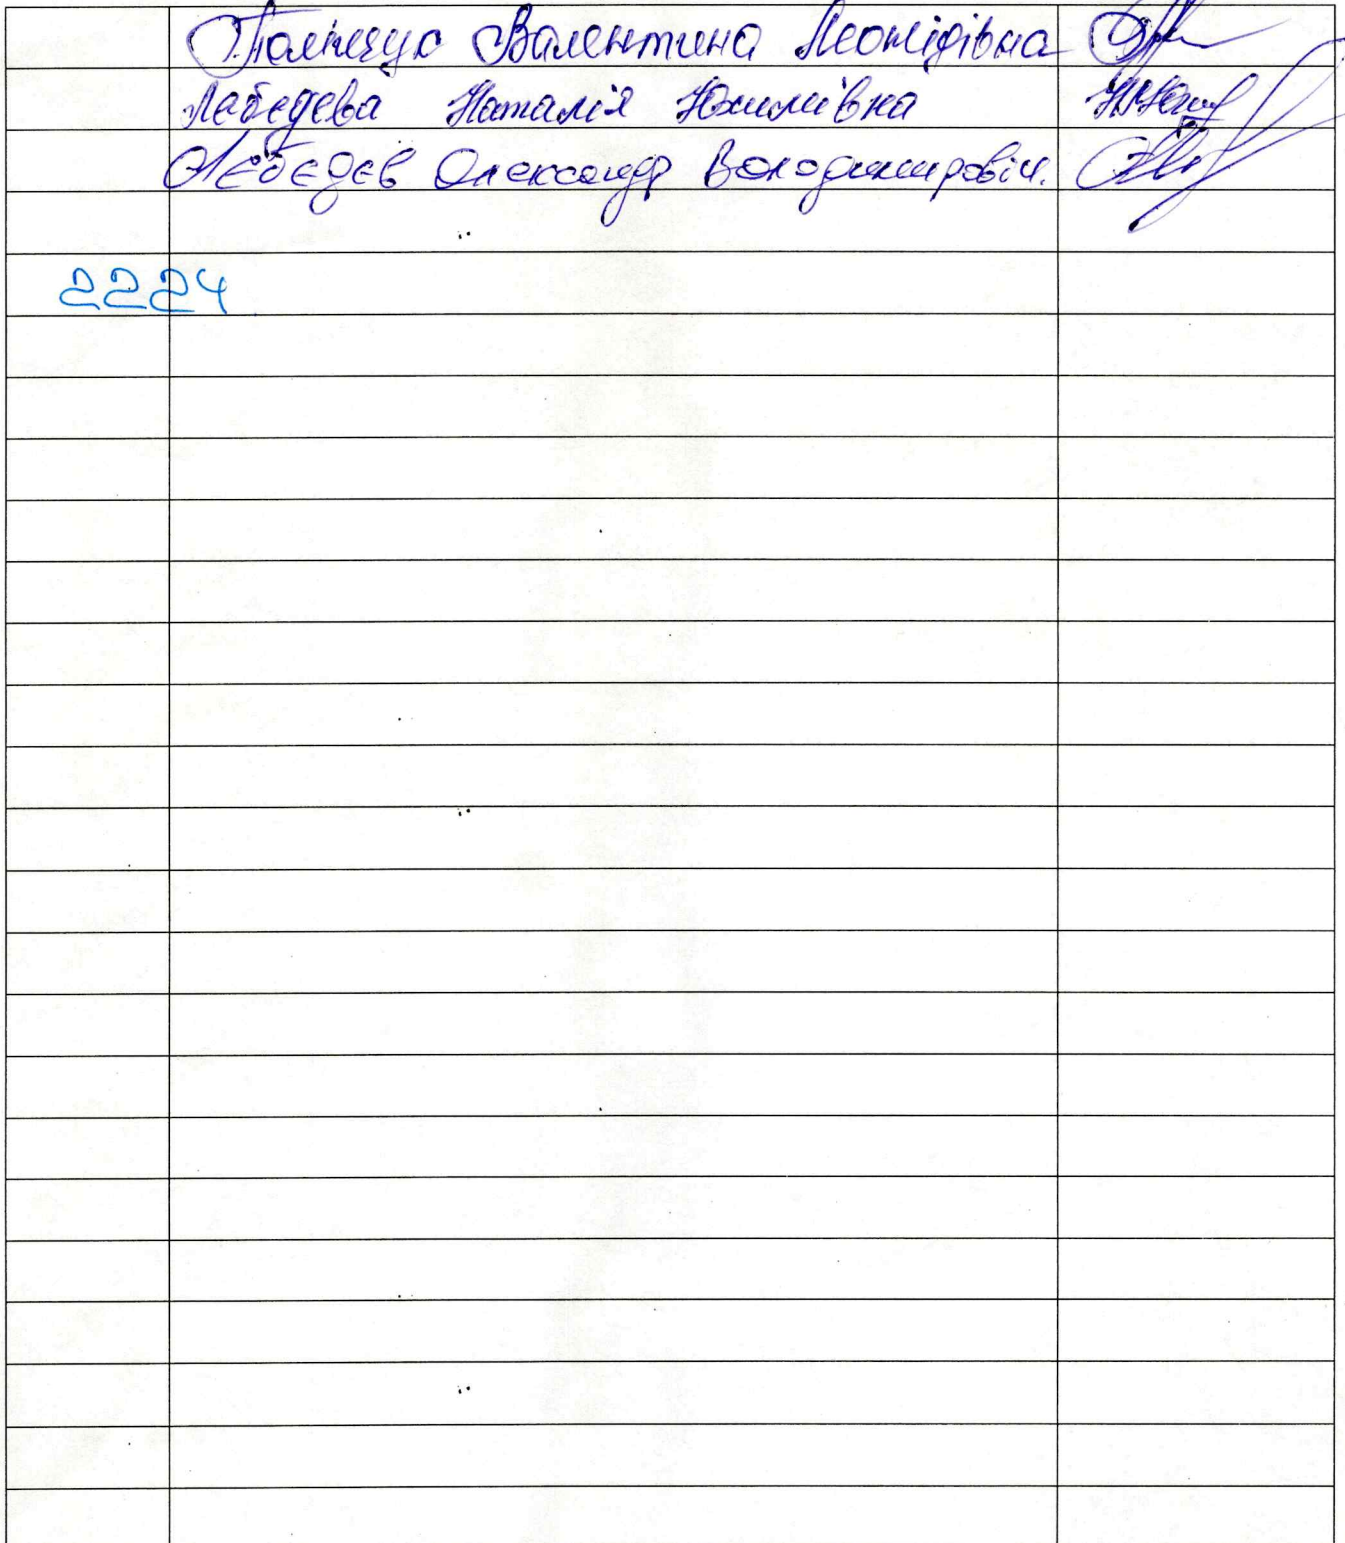 Поліщук Валентина Леонідівна
Лебедева Наталія Юхимівна
Лебедев Олександр Володимирович.
2224